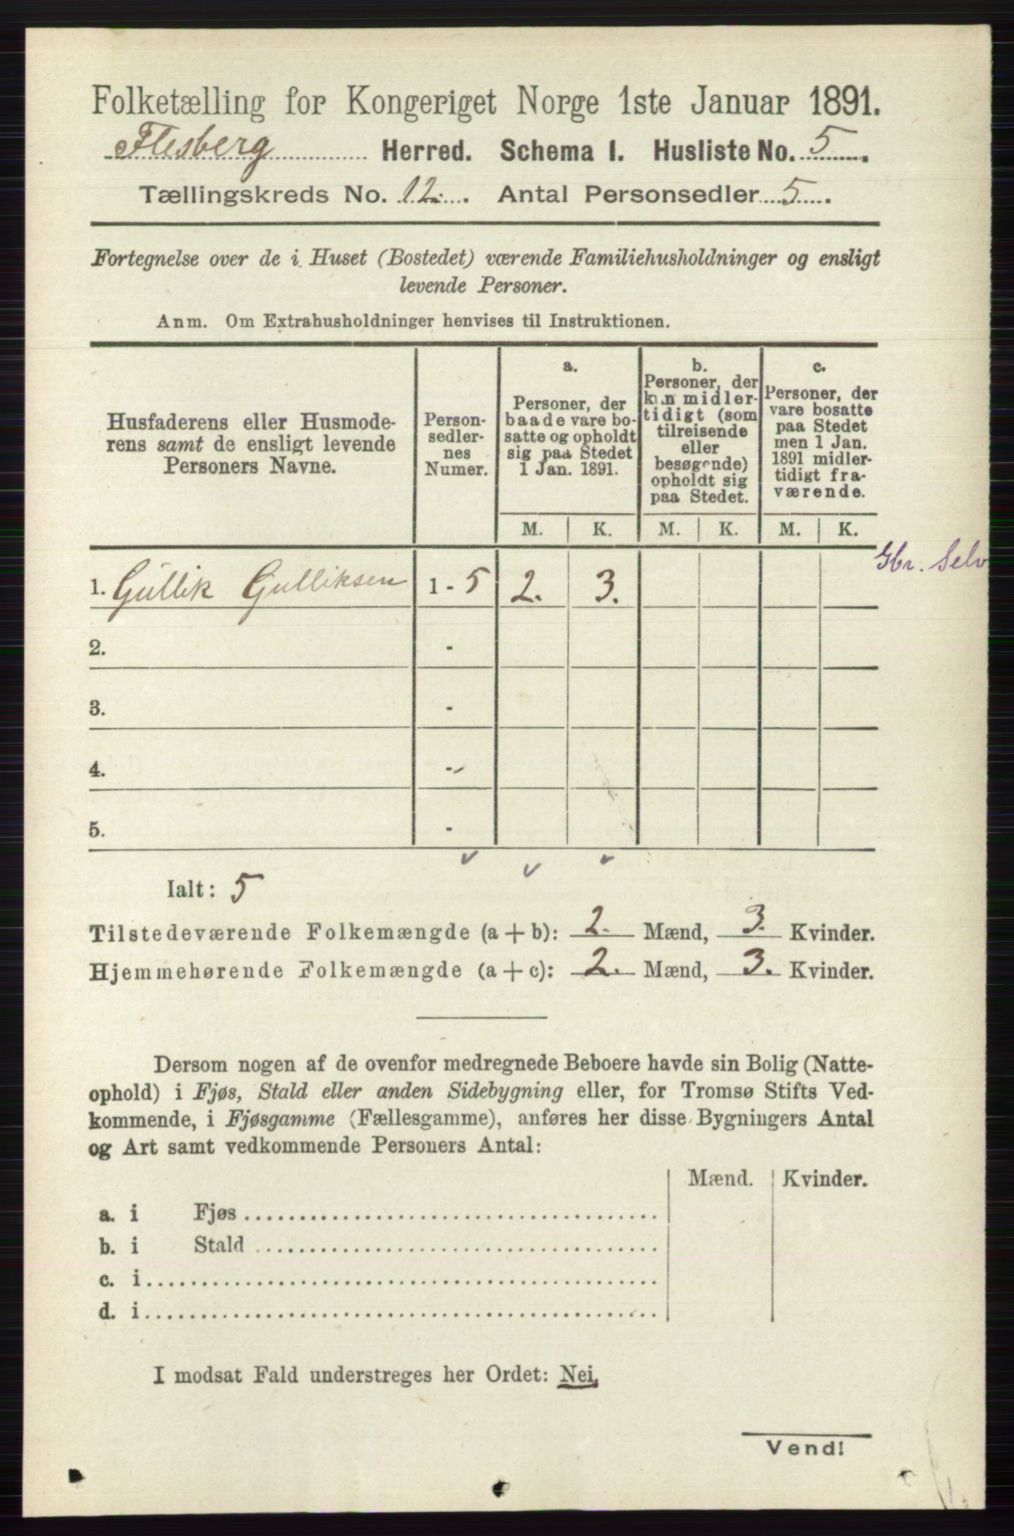 Folketælling for Kongeriget Norge 1ste Januar 1891.
Flesberg Herred. Schema I. Husliste No. 5.
Tællingskreds No. 12. Antal Personsedler 5.
Fortegnelse over de i Huset (Bostedet) værende Familiehusholdninger og ensligt
levende Personer.
Anm. Om Extrahusholdninger henvises til Instruktionen.
Husfaderens eller Husmode-
rens samt de ensligt levende
Personers Navne.
Person-
sedler-
nes
Numer.
a.
Personer, der
baade vare bo-
satte og opholdt
sig paa Stedet
1 Jan. 1891.
b.
Personer, der
kun midler-
tidigt (som
tilreisende
eller
besøgende)
opholdt sig
paa Stedet.
c.
Personer, der
vare bosatte
paa Stedet
men 1 Jan.
1891 midler-
tidigt fra-
værende.
M. K. M. K. M. K.
Gbr. Selv
1. Gullik Gulliksen 1 - 5 2. 3.
2. -
3. -
4. -
5. -
Ialt: 5
Tilstedeværende Folkemængde (a + b): 2. Mænd, 3. Kvinder.
Hjemmehørende Folkemængde (a + c): 2. Mænd, 3. Kvinder.
Dersom nogen af de ovenfor medregnede Beboere havde sin Bolig (Natte-
ophold) i Fjøs, Stald eller anden Sidebygning eller, for Tromsø Stifts Ved-
kommende, i Fjøsgamme (Fællesgamme), anføres her disse Bygningers Antal
og Art samt vedkommende Personers Antal:
Mænd. Kvinder.
a. i Fjøs
b. i Stald
c. i
d. i
I modsat Fald understreges her Ordet: Nei.
Vend!